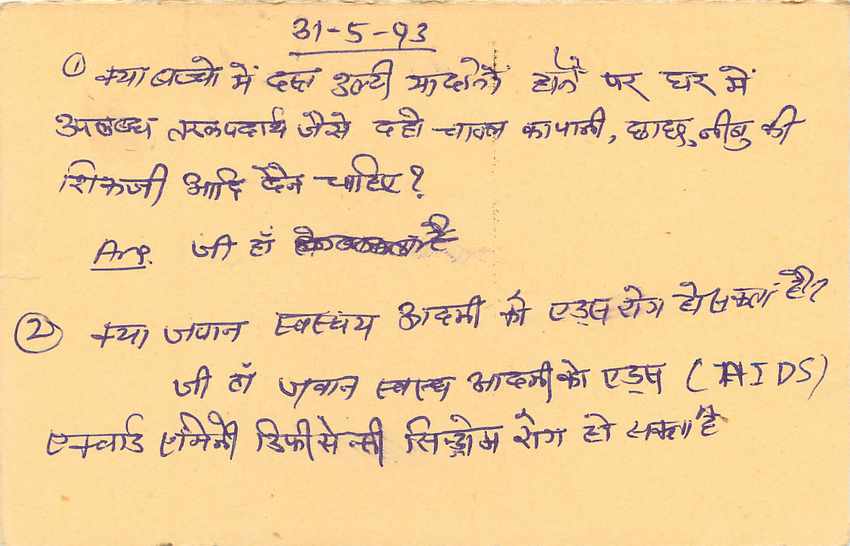 31-5-93
① क्या बच्चो में दस्त उल्टी या दोनो होने पर घर में
उपलब्ध तरल पदार्थ जैसे दही चावल का पानी, छाछ, नीबु की
शिकंजी आदि देने चाहिए?
Ans. जी हाँ है
② क्या जवान स्वस्थय आदमी को एड्स रोग हो सकता है?
जी हाँ जवान स्वस्थ आदमी को एड्स (AIDS)
एक्वार्ड एमिनी डिफीसेन्सी सिन्ड्रोम रोग हो सकता है